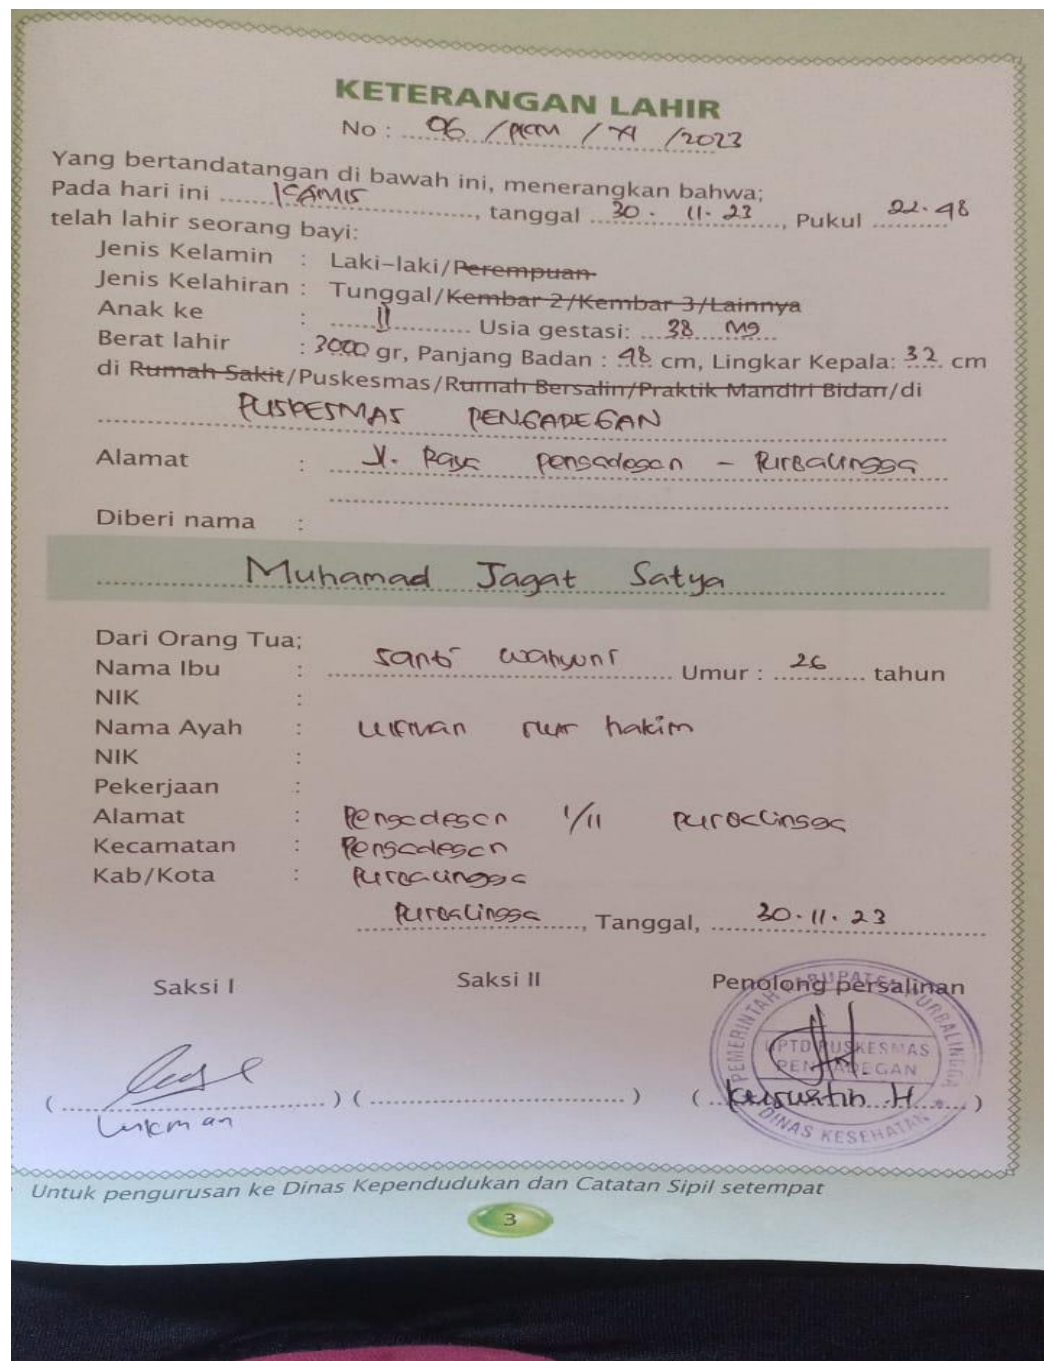 KETERANGAN LAHIR
No : 06 / PKM / XI / 2023
Yang bertandatangan di bawah ini, menerangkan bahwa;
Pada hari ini KAMIS, tanggal 30 - 11 - 23, Pukul 22.48
telah lahir seorang bayi:
Jenis Kelamin : Laki-laki/Perempuan
Jenis Kelahiran : Tunggal/Kembar 2/Kembar 3/Lainnya
Anak ke : II Usia gestasi: 38 Mg
Berat lahir : 3000 gr, Panjang Badan : 48 cm, Lingkar Kepala: 32 cm
di Rumah Sakit/Puskesmas/Rumah Bersalin/Praktik Mandiri Bidan/di
PUSKESMAS PENGADEGAN
Alamat : Jl. Raya Pengadegan - Purbalingga
Diberi nama :
Muhamad Jagat Satya
Dari Orang Tua;
Nama Ibu : Santi Wahyuni Umur : 26 tahun
NIK :
Nama Ayah : Lukman nur hakim
NIK :
Pekerjaan :
Alamat : Pengadegan 1/11 Purbalingga
Kecamatan : Pengadegan
Kab/Kota : Purbalingga
Purbalingga, Tanggal, 30 - 11 - 23
Saksi I Saksi II Penolong persalinan
PEMERINTAH KABUPATEN PURBALINGGA
UPTD PUSKESMAS
PENGADEGAN
DINAS KESEHATAN
Lukman
Untuk pengurusan ke Dinas Kependudukan dan Catatan Sipil setempat
3